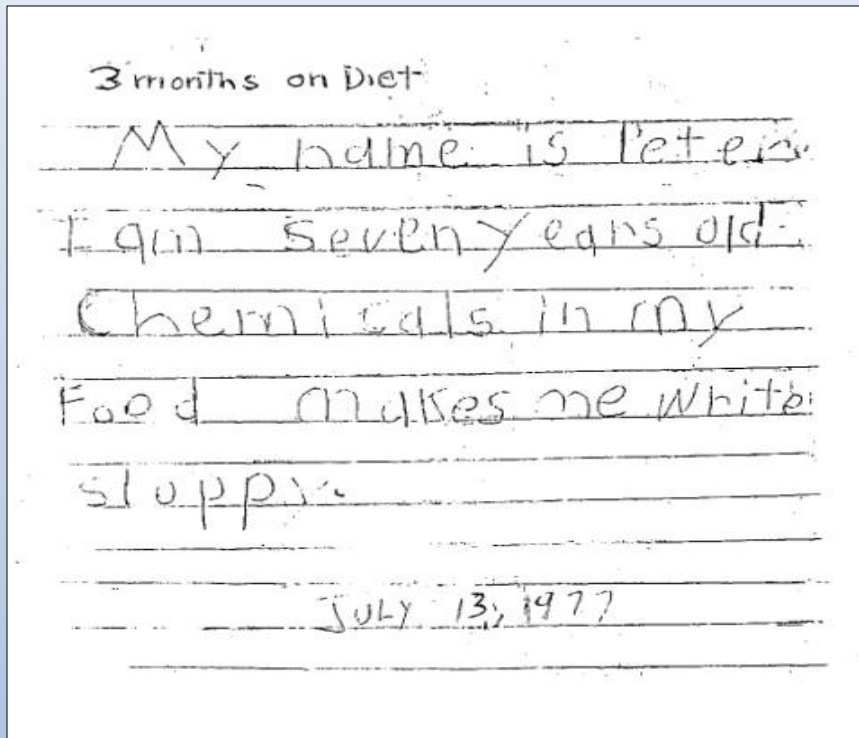 3 months on Diet
My name is Peter.
I am seven years old.
Chemicals in my
Food makes me write
sloppy.
JULY 13, 1977